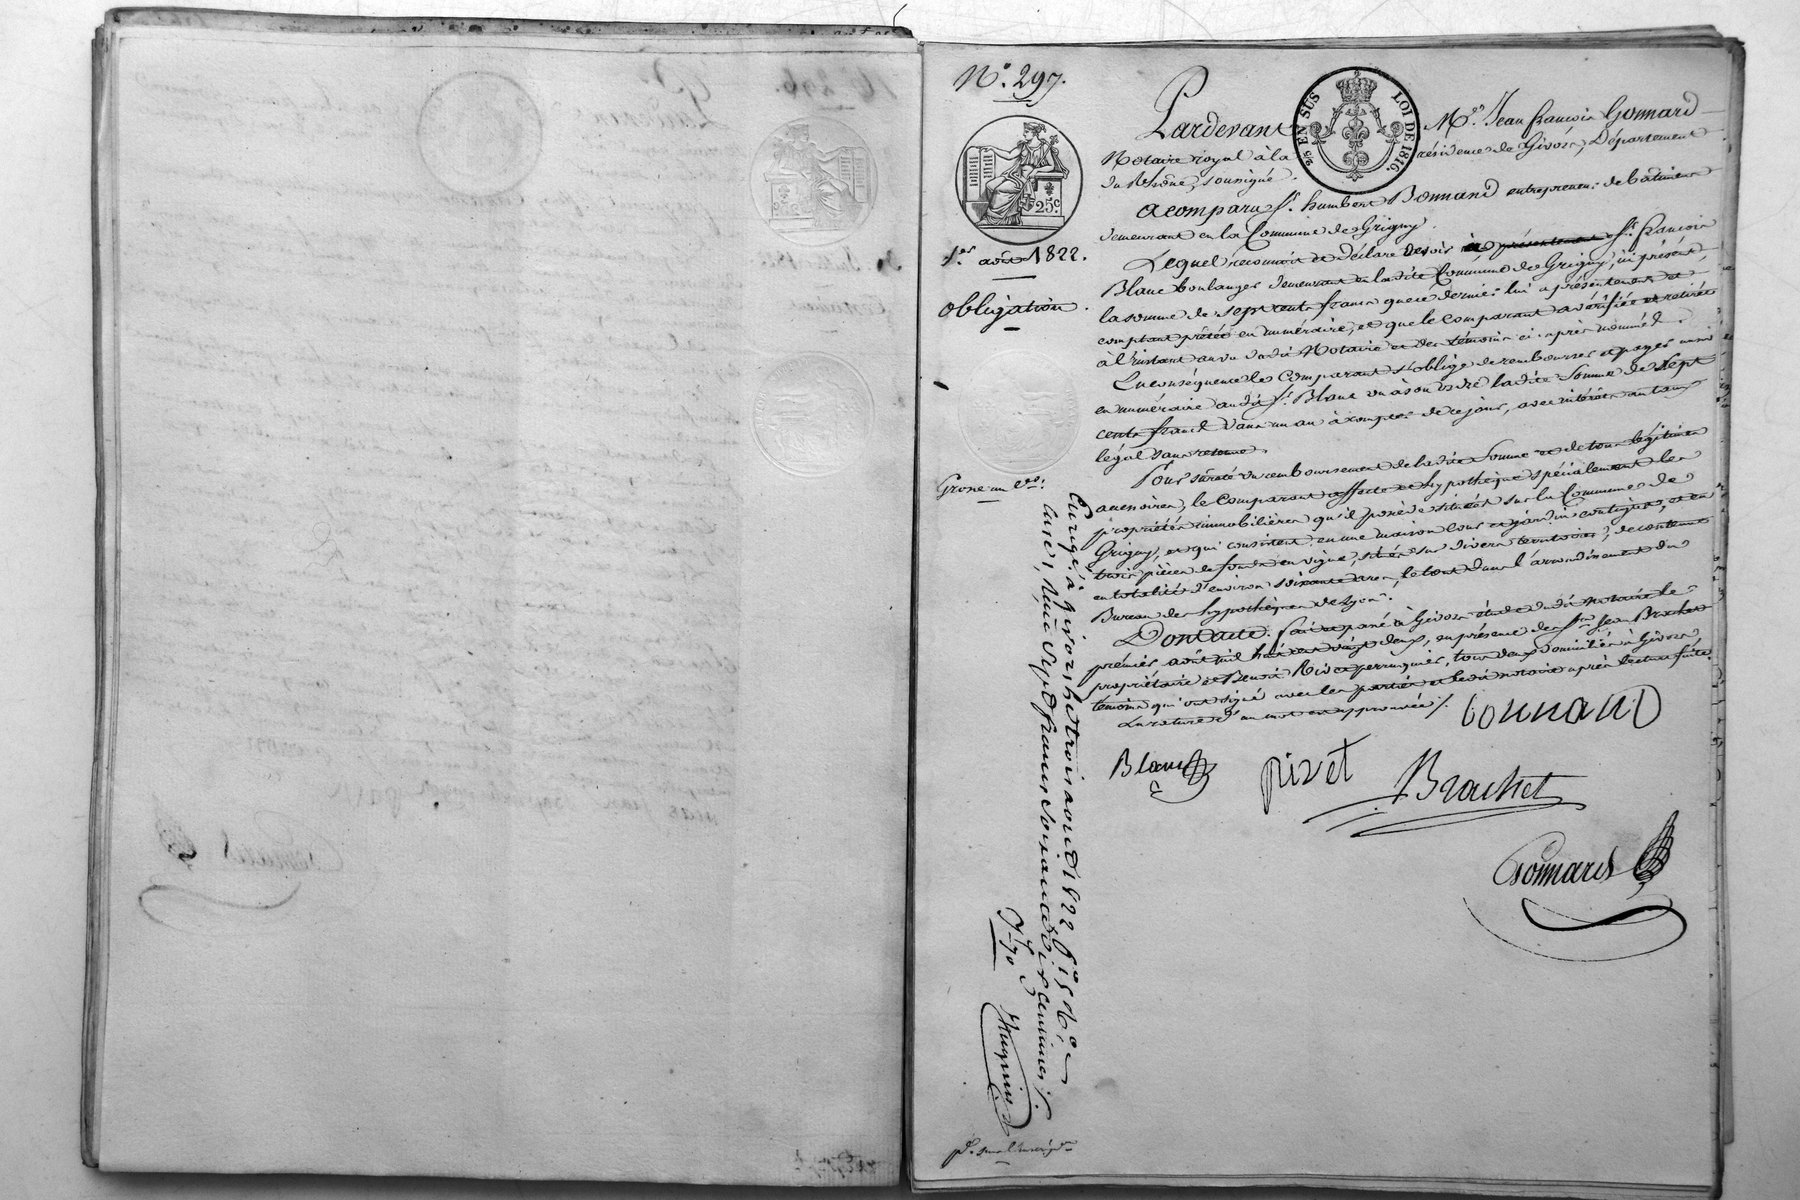 N.° 297.
25.c
1.er août 1822.
obligation.
Grosse un
2/5 EN SUS
LOI DE 1816.
Pardevant M.e Jean françois Gonnard
Notaire royal à la résidence de Givors, Département
du Rhône, soussigné.
a comparu s.r humbert Bonnand entrepreneur de bâtimens
demeurant en la Commune de Grigny.
Lequel reconnoit et déclare devoir à présentement s.r françois
Blanc boulanger demeurant en la dite Commune de Grigny, ici présent,
la somme de sept cents francs que ce dernier lui a présentement et
comptant prêtée en numéraire, et que le comparant a vérifiée et retirée
à l'instant au vu dudit Notaire et des témoins ci-après nommés.
En conséquence le Comparant s'oblige de rembourser et payer aussi
en numéraire audit s.r Blanc ou à son ordre ladite Somme de Sept
cents francs dans un an à compter de ce jour, avec intérêts au taux
légal sans retenue.
Pour sûreté du remboursement de ladite Somme et de tous légitimes
accessoires, le comparant affecte et hypothèque spécialement les
propriétés immobilières qu'il possède situées sur la Commune de
Grigny, et qui consistent en une maison cour et jardin contigus, et en
trois pièces de fonds en vigne, situées sur divers territoires, de contenue
en totalité d'environ soixante ares, le tout dans l'arrondissement du
Bureau des hypothèques de Lyon.
Dont acte: fait et passé à Givors étude dudit notaire le
premier août mil huit cent vingt deux, en présence des s.rs Jean Brachet
propriétaire et Benoit Pivet perruquier, tous deux domiciliés à Givors,
témoins qui ont signé avec les parties et ledit notaire après lecture faite.
La rature d'un mot est approuvée ./.
bonnand
Blanc
pivet
Brachet
Gonnard
Enregé. à givors le trois aout 1822 f.° 15 V.° C.e
sept francs soixante dix centimes ./.
7f. 70 c